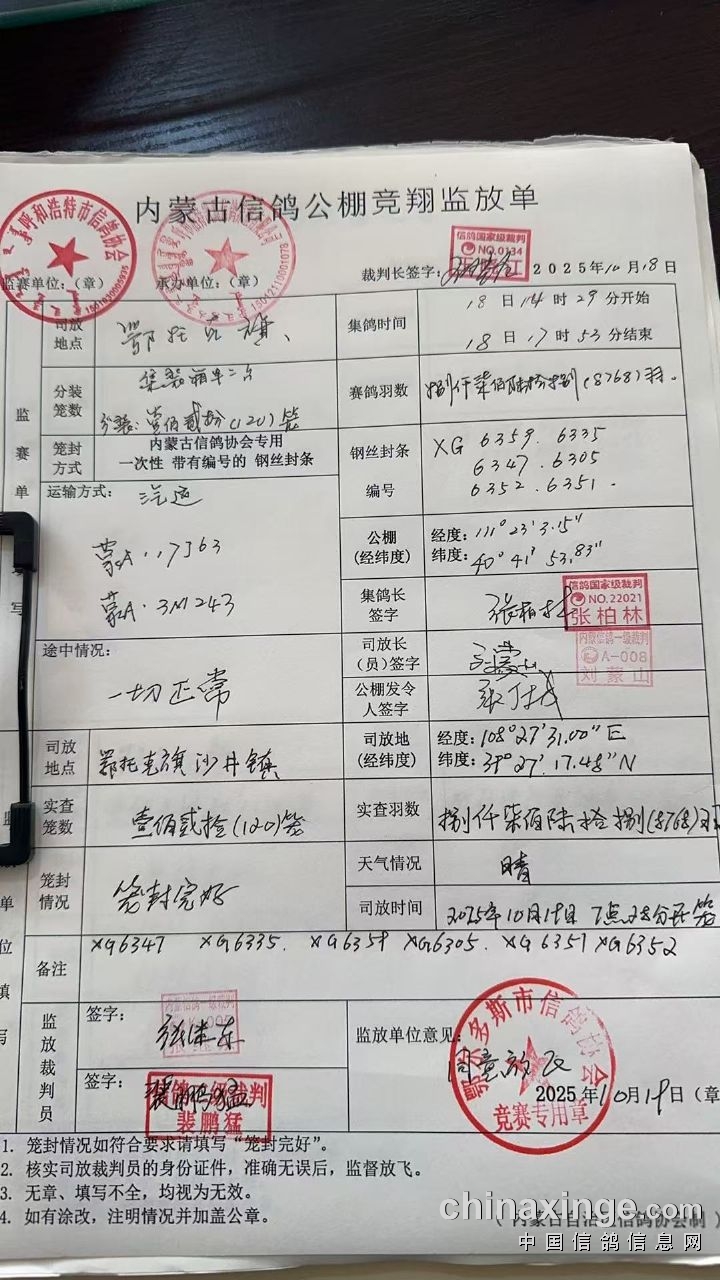 内蒙古信鸽公棚竞翔监放单
呼和浩特市信鸽协会
信鸽国家级裁判
NO.0134
监赛单位:(章) 承办单位:(章) 裁判长签字: 2025年10月18日
司放地点 鄂托克旗、 集鸽时间 18日14时29分开始
18日17时53分结束
分装笼数 集装箱车二台
分装:壹佰贰拾(120)笼 赛鸽羽数 捌仟柒佰陆拾捌(8768)羽。
监赛单
笼封方式 内蒙古信鸽协会专用
一次性 带有编号的 钢丝封条
钢丝封条编号 XG 6359. 6335
6347 .6305
6352 .6351.
运输方式: 汽运
蒙A..17J63
蒙A.3M243
公棚(经纬度) 经度:111°23'3.15"
纬度:40°41'53.83"
集鸽长签字 张柏林
信鸽国家级裁判
NO.22021
张柏林
途中情况: 一切正常
司放长(员)签字 刘蒙山
内蒙信鸽一级裁判
A-008
刘蒙山
公棚发令人签字
司放地点 鄂托克旗沙井镇
司放地(经纬度) 经度:108°27'31.00"E
纬度:39°27'17.48"N
实查笼数 壹佰贰拾(120)笼 实查羽数 捌仟柒佰陆拾捌(8768)羽
笼封情况 笼封完好 天气情况 晴
司放时间 2025年10月19日 7点25分开笼
备注 XG6347 XG6335. XG6359 XG6305. XG6351 XG6352
监放裁判员 签字:
内蒙信鸽一级裁判
签字: 裴鹏猛
信鸽一级裁判
裴鹏猛
监放单位意见: 同意放飞
鄂尔多斯市信鸽协会
竞赛专用章
2025年10月19日(章
1. 笼封情况如符合要求请填写“笼封完好”。
2. 核实司放裁判员的身份证件,准确无误后,监督放飞。
3. 无章、填写不全,均视为无效。
4. 如有涂改,注明情况并加盖公章。
(内蒙古自治区信鸽协会制)
chinaxinge.com
中国信鸽信息网